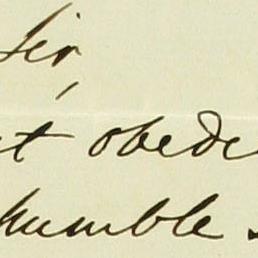 Sir,
t obede
humble